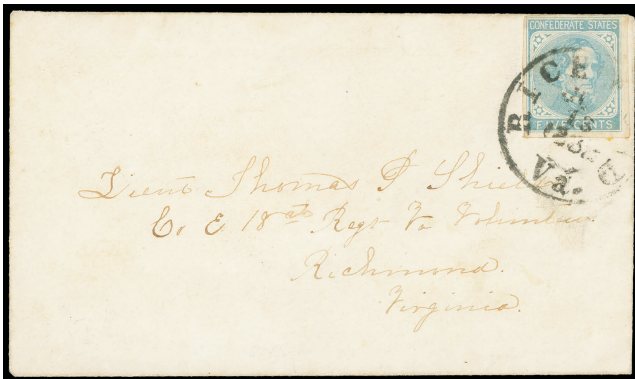 CONFEDERATE STATES
FIVE CENTS
RICE
Va.
Lieut Thomas P Shields
Co E 18th Regt Va Volunteers
Richmond.
Virginia.